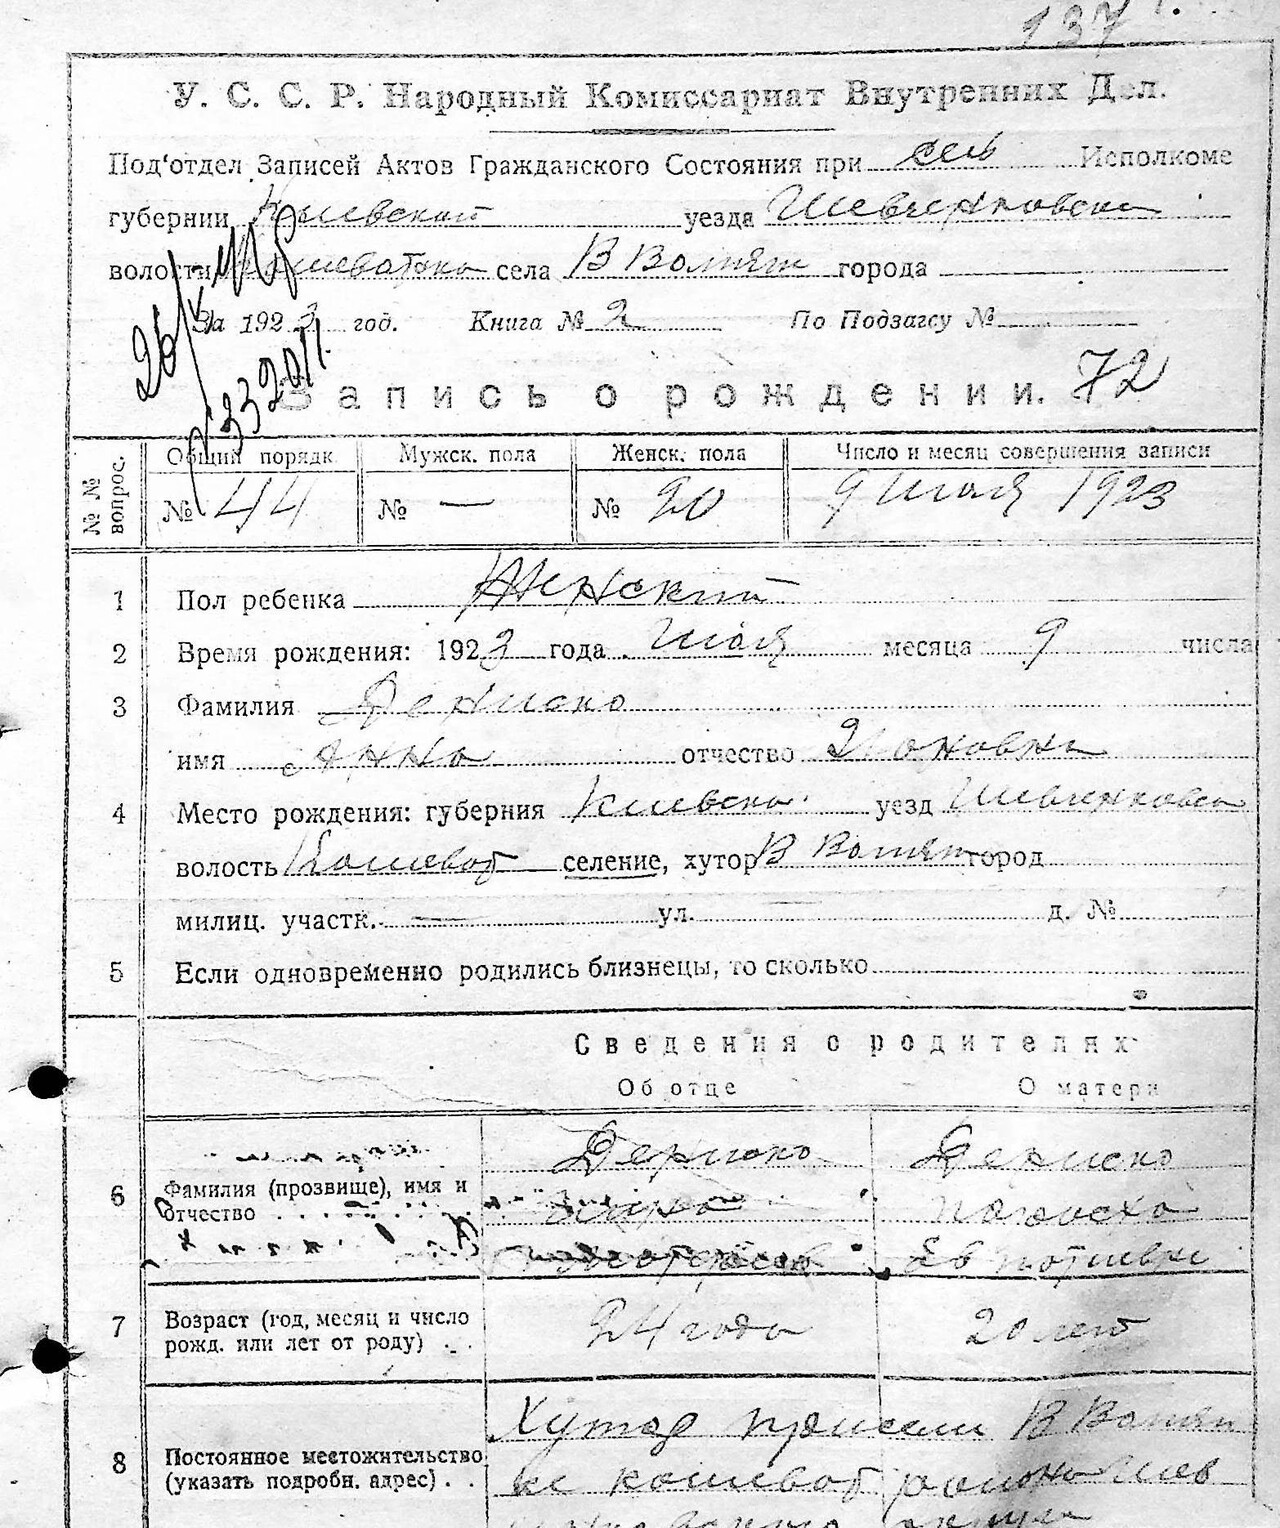 137
У. С. С. Р. Народный Комиссариат Внутренних Дел.
Под‘отдел Записей Актов Гражданского Состояния при сель Исполкоме
губернии Киевской уезда Шевченковской
волости села В Вотяг города
За 1923 год. Книга № 2 По Подзагсу №
Запись о рождении. 72
№ № вопрос.
Общий порядк. Мужск. пола Женск. пола Число и месяц совершения записи
№ 44 № — № 20 9 июля 1923
1 Пол ребенка Женский
2 Время рождения: 1923 года июля месяца 9 числа
3 Фамилия Дениско
имя Анна отчество
4 Место рождения: губерния Киевско уезд Шевченковско
волость Кошеват селение, хутор В город
милиц. участк. — ул. — д. №
5 Если одновременно родились близнецы, то сколько
Сведения о родителях
Об отце О матери
6 Фамилия (прозвище), имя и отчество . . . Дениско Дениско
7 Возраст (год, месяц и число рожд. или лет от роду) . . . 24 года 20 лет
8 Постоянное местожительство (указать подробн. адрес) . . Хутор В
кошеват района Шев